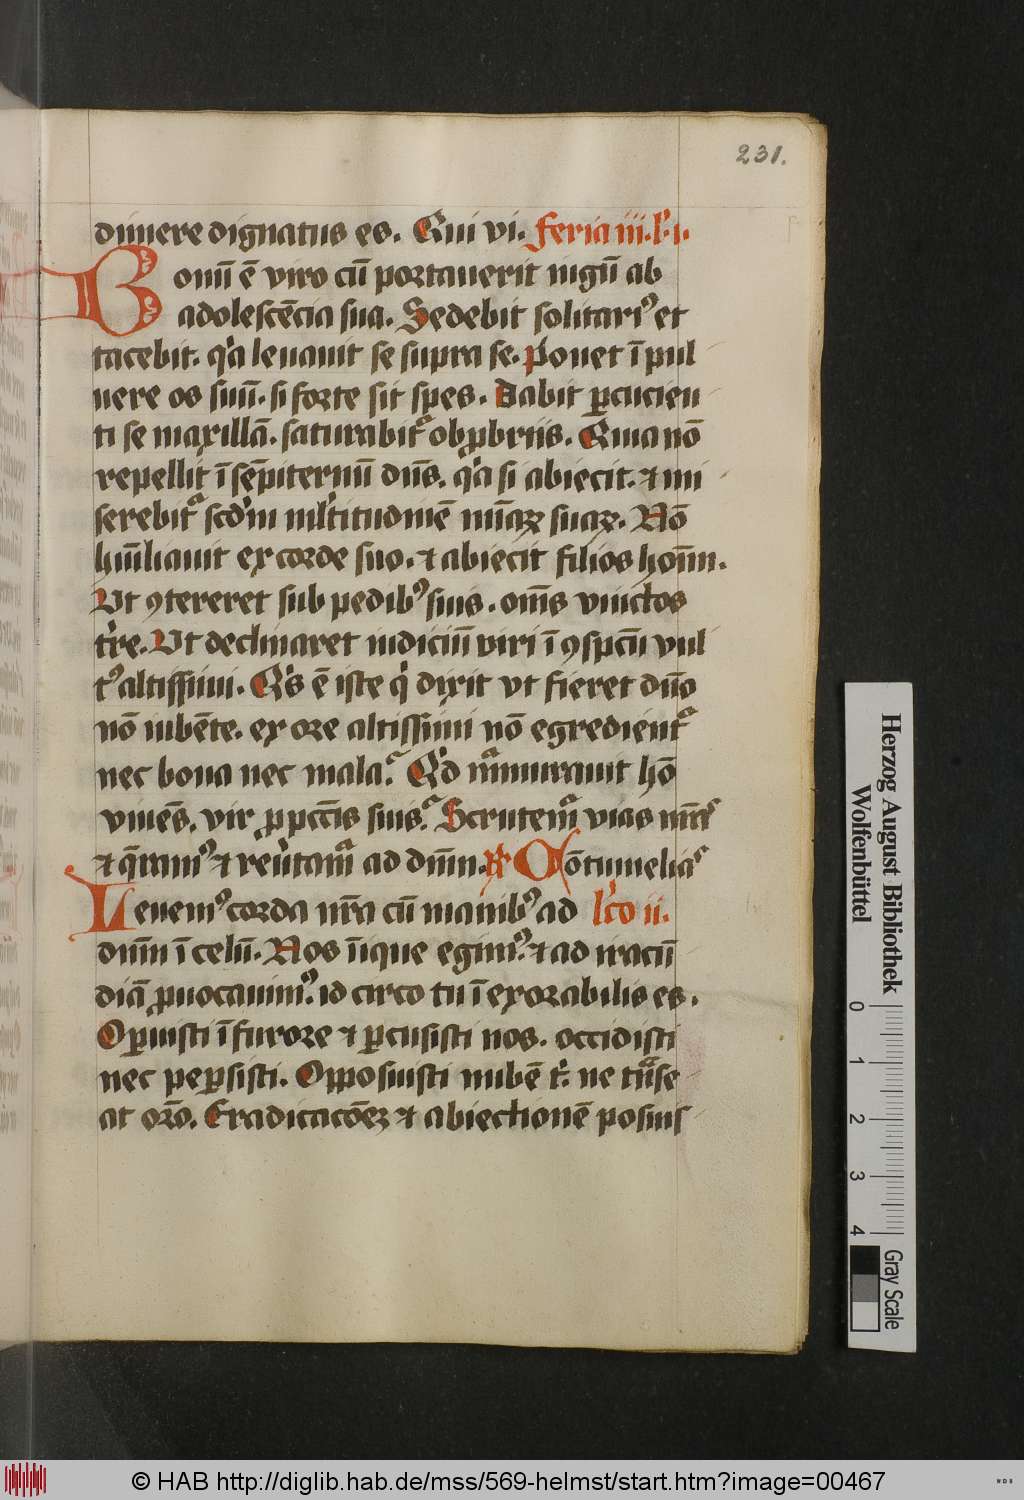 231.
dimere dignatus es. Qui vi. feria iii. l. i.
Bonū ē viro cū portauerit iugū ab
adolescēcia sua. Sedebit solitari⁹ et
tacebit. qͥa leuauit se supra se. Ponet ī pul
uere os suū. si forte sit spes. Dabit ꝑcucien
ti se maxillā. saturabit᷑ obꝓbriis. Quia nō
repellit ī sēpiternū dn̄s. qͥa si abiecit. ⁊ mi
serebit᷑ scd̓m ml̓titudinē mīaꝝ suaꝝ. Nō
hūiliauit ex corde suo. ⁊ abiecit filios hoīm.
Ut ꝯtereret sub pedib⁹ suis. om̄s vinctos
tr̓e. Ut declinaret iudiciū viri ī ꝯspcū vul
t⁹ altissimi. Qͥs ē iste qͥ dixit vt fieret dn̄o
nō iubēte. ex ore altissimi nō egredient᷑
nec bona nec mala. Qͥd mᷓmurauit hō
viuēs. vir ꝓ pctīs suis. Scrutem᷑ vias nr̄as
⁊ q̄ram⁹ ⁊ reu̓tam᷑ ad dn̄m. ℟ Cōtumelias
Leuem⁹ corda nr̄a cū manib⁹ ad lc̓o ii.
dn̄m ī celū. Nos īique egim⁹. ⁊ ad iracū
diā ꝓuocauim⁹. idcirco tu īexorabilis es.
Oꝑuisti ī furore ⁊ ꝑcusisti nos. occidisti
nec peꝑsisti. Opposuisti nubē t̓. ne tᷓnse
at or̄o. Eradicacōeꝫ ⁊ abiectionē posuis
Herzog August Bibliothek
Wolfenbüttel
0 1 2 3 4
Gray Scale
© HAB http://diglib.hab.de/mss/569-helmst/start.htm?image=00467